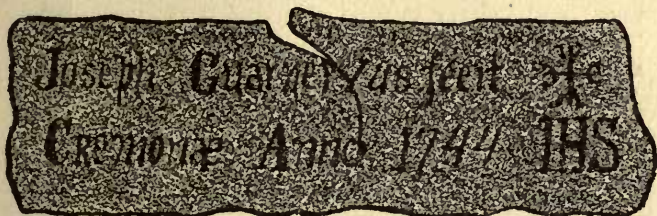 Joseph Guarnerius fecit ✠
Cremonæ Anno 1744 IHS